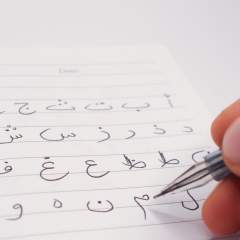 Date
أ ب ت ث ج
د ذ ر ز س ش
ط ظ ع غ ف
ل م ن ه و